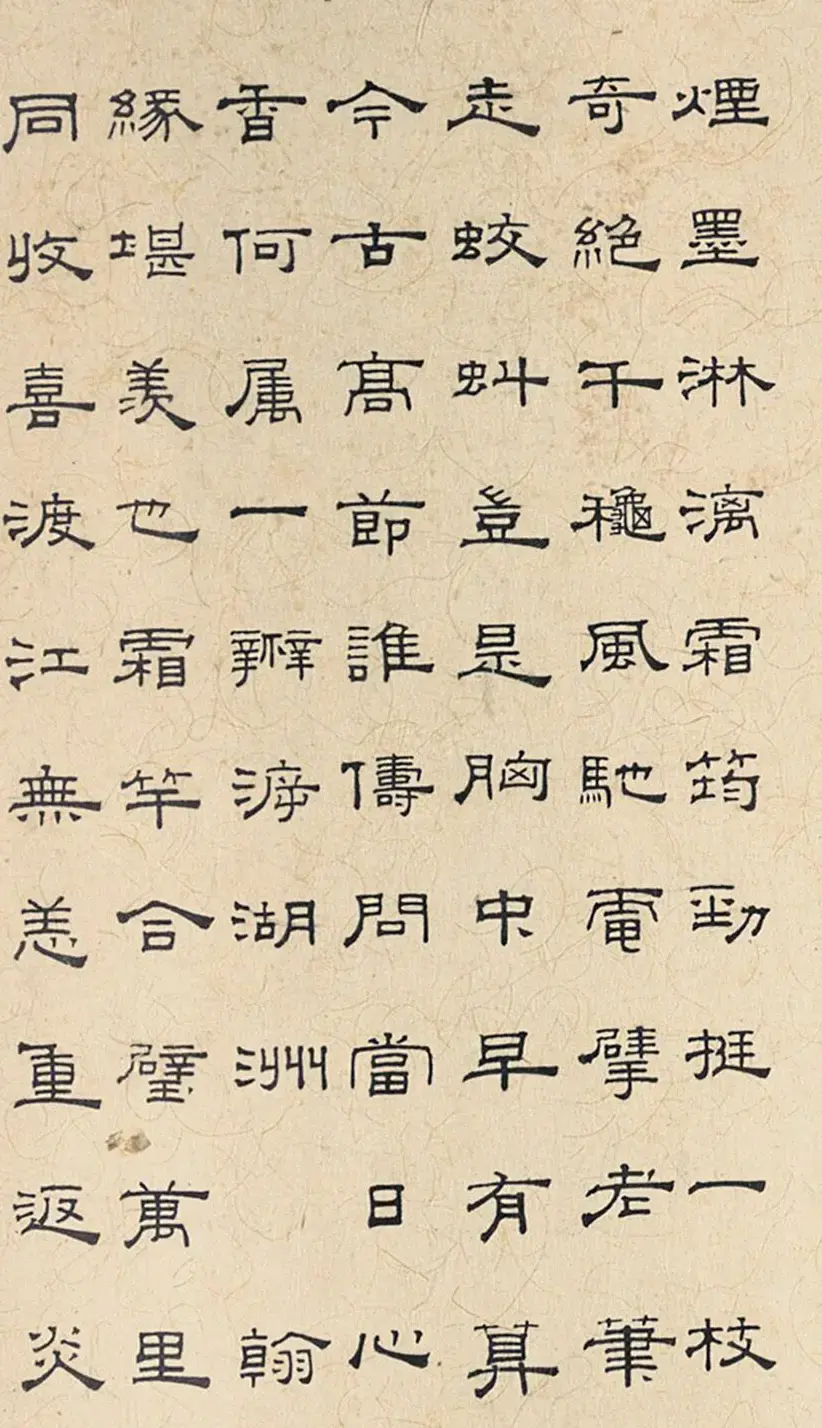 煙墨淋漓霜筠勁挺一枝
奇絕千龝風馳電擘老筆
走蛟虯豈是胸中早有算
今古高節誰儔問當日心
香何属一瓣湖洲 翰
緣堪羨也霜竿合璧萬里
同收喜渡江無恙重返炎